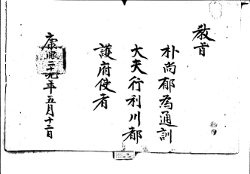 教旨
朴尚郁爲通訓
大夫行利川都
護府使者
康熙三十九年五月十二日